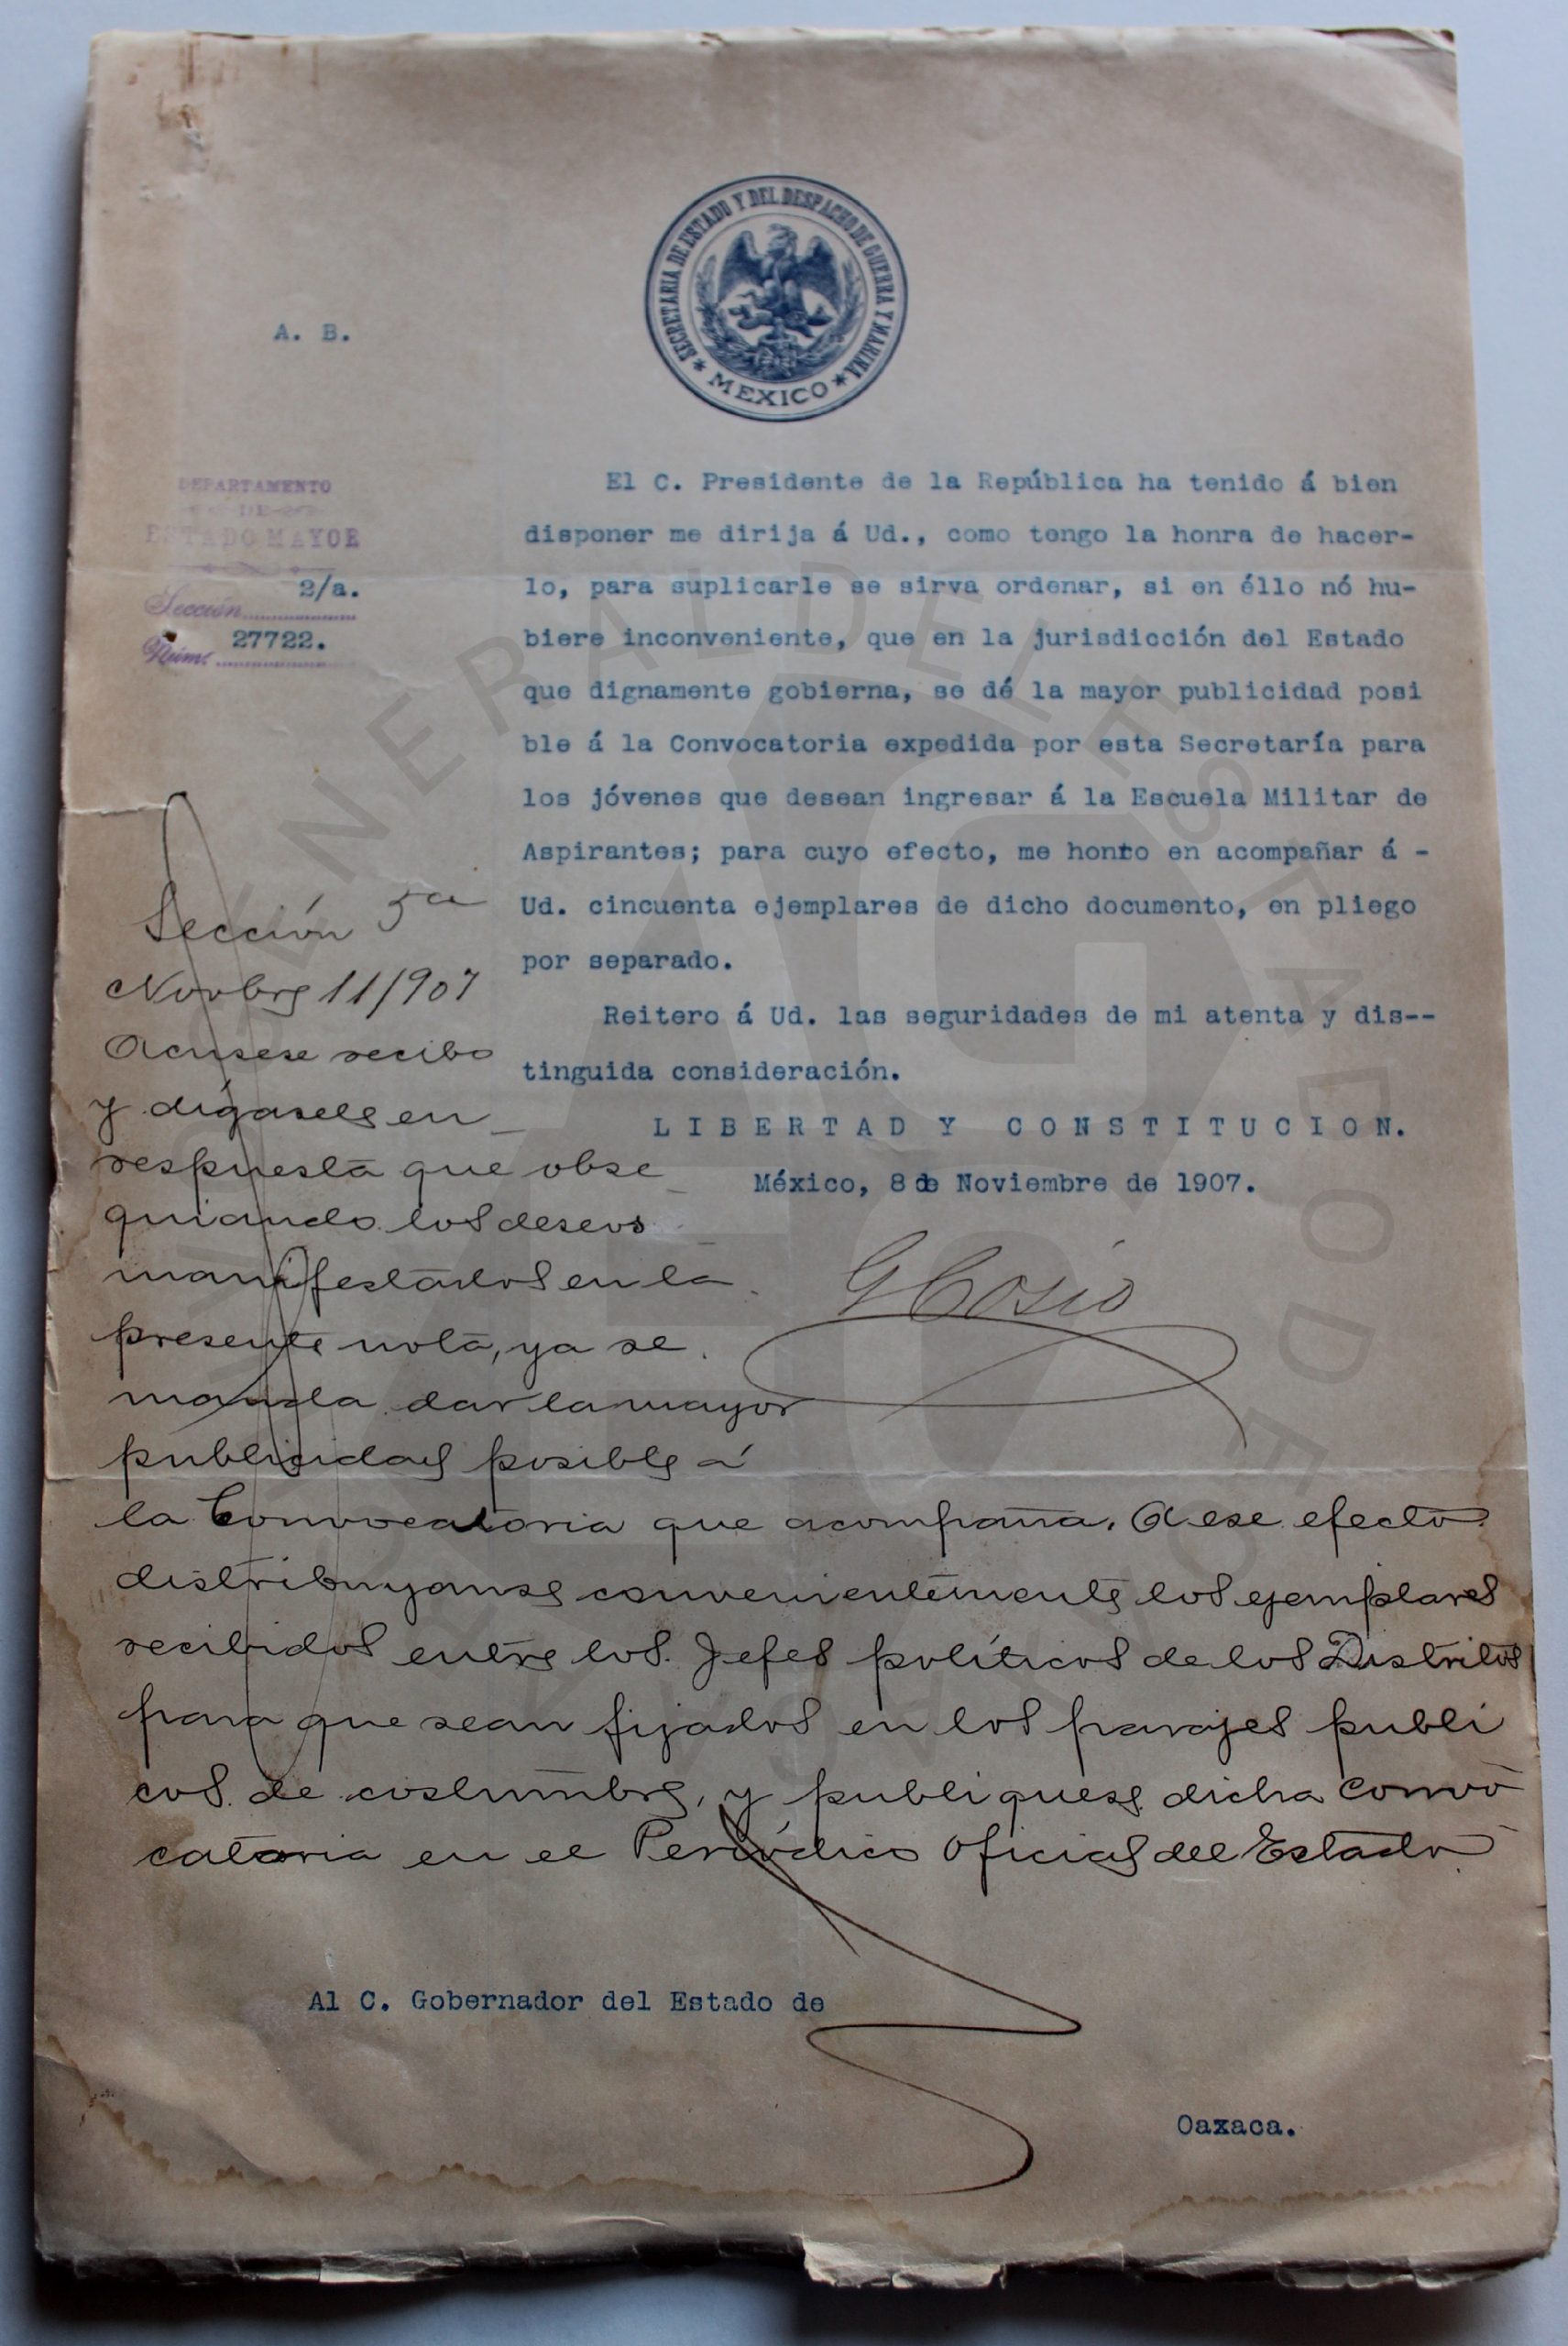 SECRETARIA DE ESTADO Y DEL DESPACHO DE GUERRA Y MARINA
* MEXICO *
A. B.
DEPARTAMENTO
DE
ESTADO MAYOR
Sección 2/a.
Núm. 27722.
El C. Presidente de la República ha tenido á bien
disponer me dirija á Ud., como tengo la honra de hacer-
lo, para suplicarle se sirva ordenar, si en éllo nó hu-
biere inconveniente, que en la jurisdicción del Estado
que dignamente gobierna, se dé la mayor publicidad posi
ble á la Convocatoria expedida por esta Secretaría para
los jóvenes que desean ingresar á la Escuela Militar de
Aspirantes; para cuyo efecto, me honro en acompañar á -
Ud. cincuenta ejemplares de dicho documento, en pliego
por separado.
Reitero á Ud. las seguridades de mi atenta y dis--
tinguida consideración.
LIBERTAD Y CONSTITUCION.
México, 8 de Noviembre de 1907.
G Cosío
Sección 5a
Novbre 11/907
Acusese recibo
y dígasele en
respuesta que obse
quiando los deseos
manifestados en la
presente nota, ya se
manda dar la mayor
publicidad posible á
la Convocatoria que acompaña. A ese efecto
distribuyanse convenientemente los ejemplares
recibidos entre los Jefes políticos de los Distritos
para que sean fijados en los parajes publi
cos de costumbre, y publiquese dicha convo
catoria en el Periódico Oficial del Estado
Al C. Gobernador del Estado de
Oaxaca.